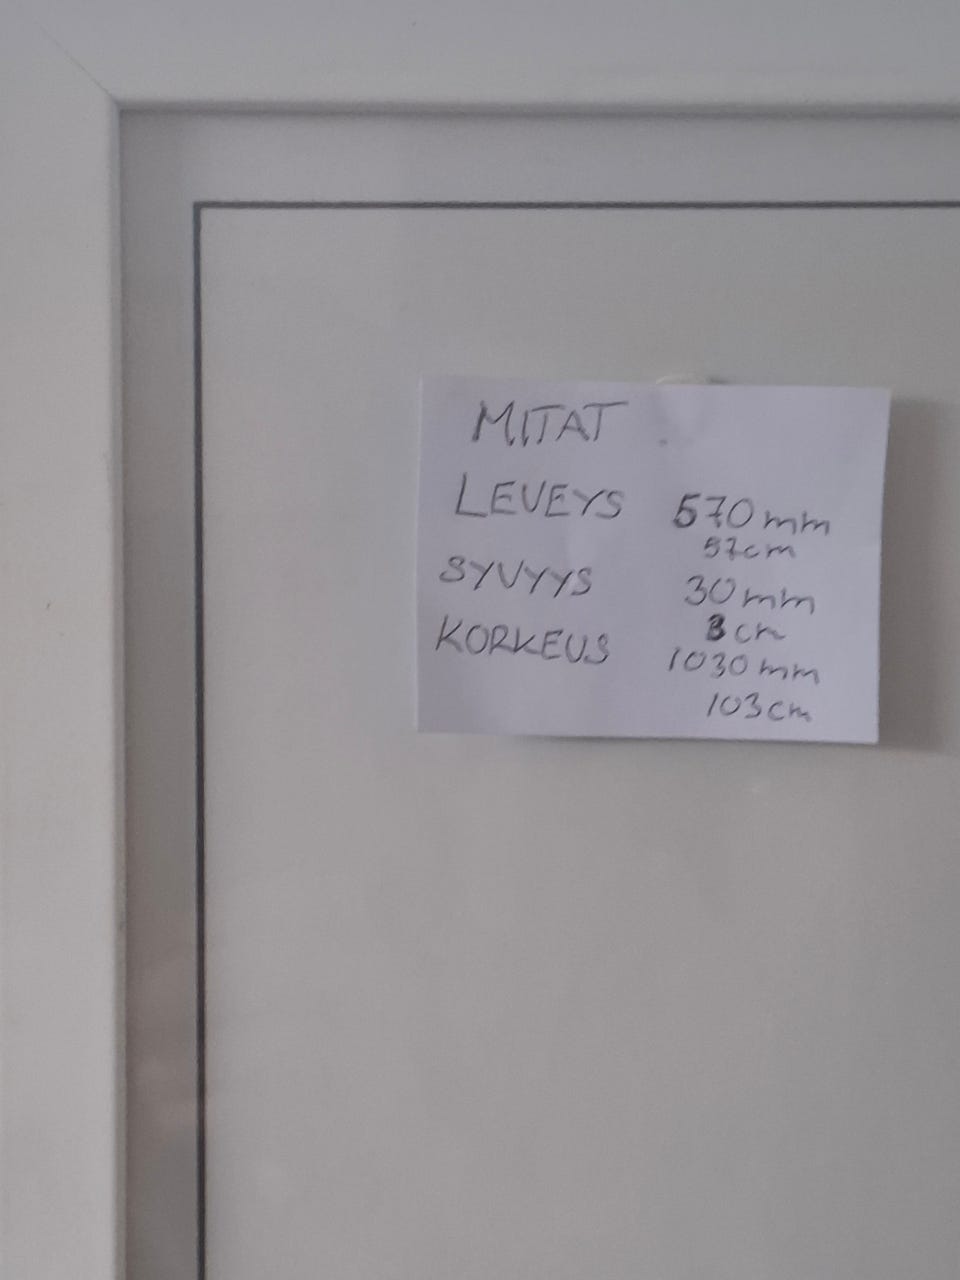 MITAT
LEVEYS 570 mm
57cm
SYVYYS 30 mm
3 cm
KORKEUS 1030 mm
103 cm